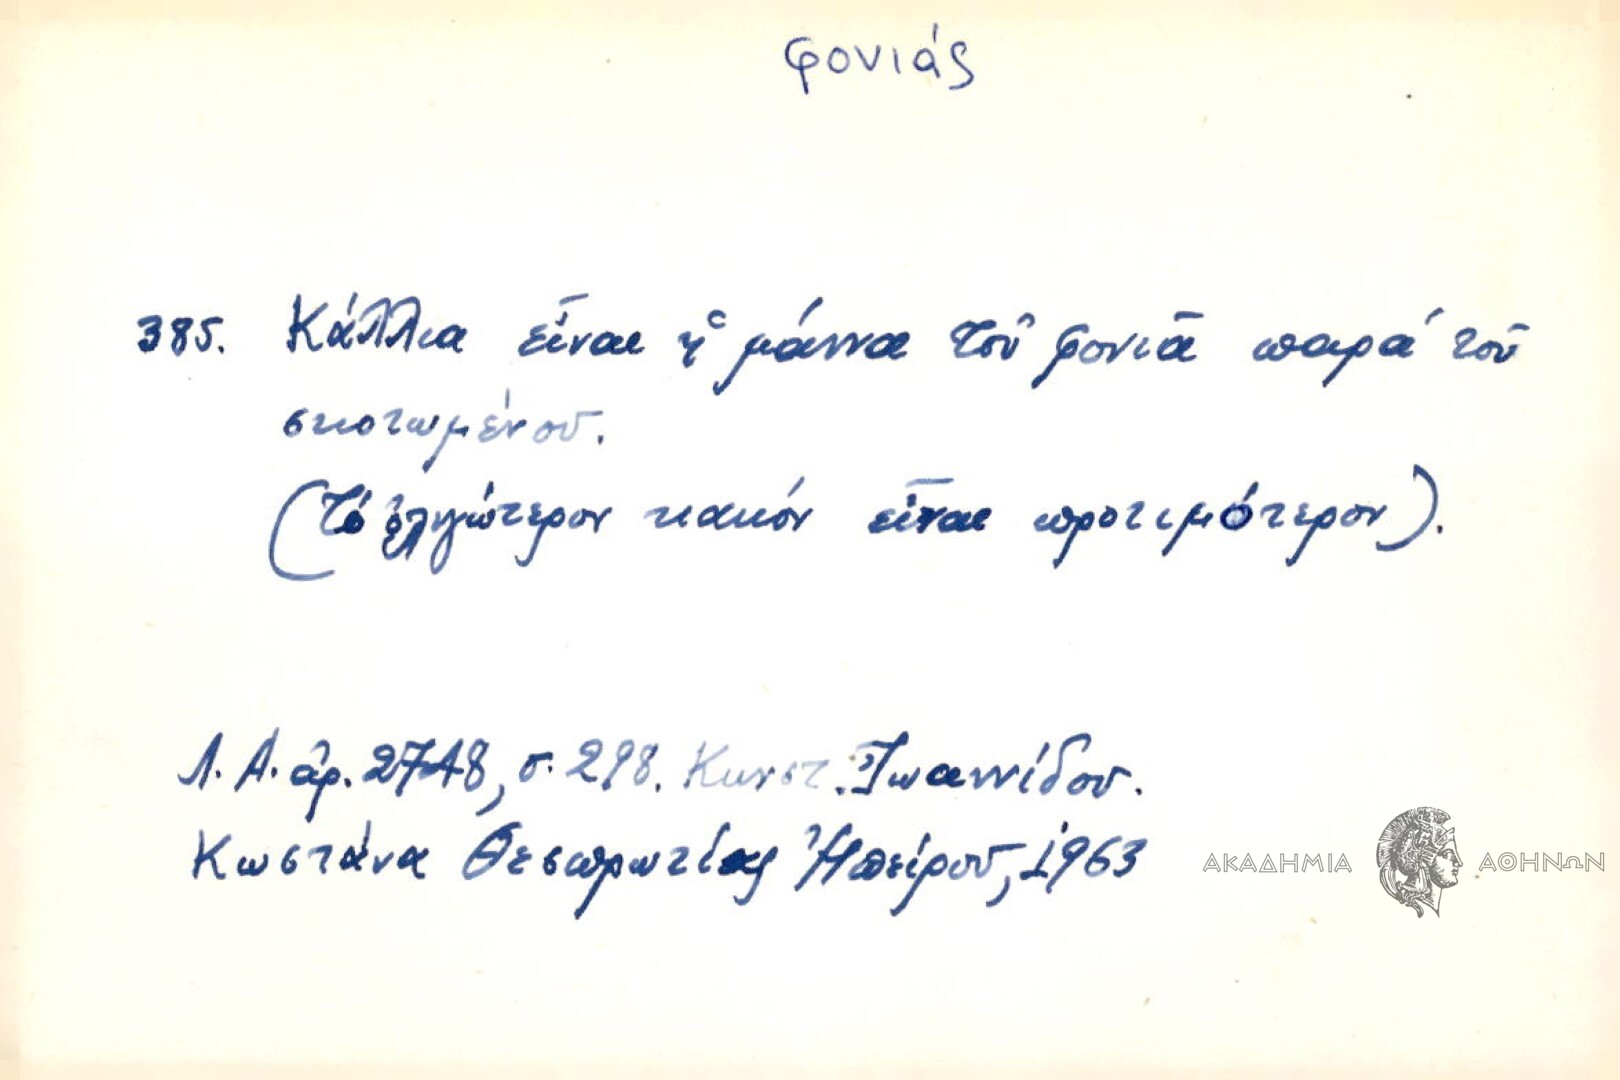 φονιάς
385. Κάλλια εἶναι ἡ μάννα τοῦ φονιᾶ παρά τοῦ
σκοτωμένου.
(Τό ὀλιγώτερον κακόν εἶναι προτιμότερον).
Λ.Α. ἀρ. 2748, σ. 298. Κωνστ. Ἰωαννίδου.
Κωστάνα Θεσπρωτίας Ἠπείρου, 1963
ΑΚΑΔΗΜΙΑ ΑΘΗΝΩΝ